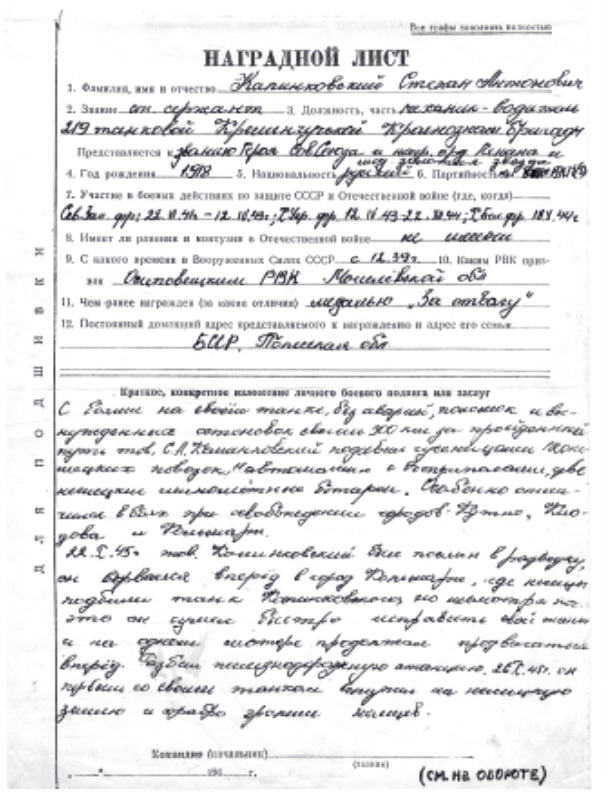 Все графы заполнять полностью
НАГРАДНОЙ ЛИСТ
1. Фамилия, имя и отчество Калинковский Степан Антонович
2. Звание ст. сержант 3. Должность, часть механик-водитель
219 танковой Кременчугской Краснознам бригады
Представляется к званию Героя Сов Союза и нагр. орд Ленина и
4. Год рождения 1918 5. Национальность русский 6. Партийность
7. Участие в боевых действиях по защите СССР и Отечественной войне (где, когда)
8. Имеет ли ранения и контузии в Отечественной войне не имеет
9. С какого времени в Вооруженных Силах СССР с 12.39г. 10. Каким РВК приз-
ван Осиповецким РВК Могилёвской обл
11. Чем ранее награжден (за какие отличия) медалью „За отвагу"
12. Постоянный домашний адрес представляемого к награждению и адрес его семьи
БССР, обл
Краткое, конкретное изложение личного боевого подвига или заслуг
С боями на своём танке, без аварий, поломок и вы-
нужденных остановок свыше 900 км за пройденный
путь тов. С.А. Калинковский подавил гусеницами
немецких повозок, автомашин с боеприпасами, две
немецкие батареи. Особенно отли-
чился в боях при освобождении городов Кутно, Кло-
дава и
22.I.45г. тов. Калинковский был послан в разведку,
он ворвался вперёд в город где немцы
подбили танк Калинковского, но несмотря на
это он сумел быстро исправить свой танк
и на одном моторе продолжал продвигаться
вперёд. Разбил железнодорожную станцию. 26.I.45г. он
первым со своим танком вступил на немецкую
землю и храбро громил немцев.
Командир (начальник)
(звание)
„ " 194 г.
(СМ. НА ОБОРОТЕ)
ДЛЯ ПОДШИВКИ